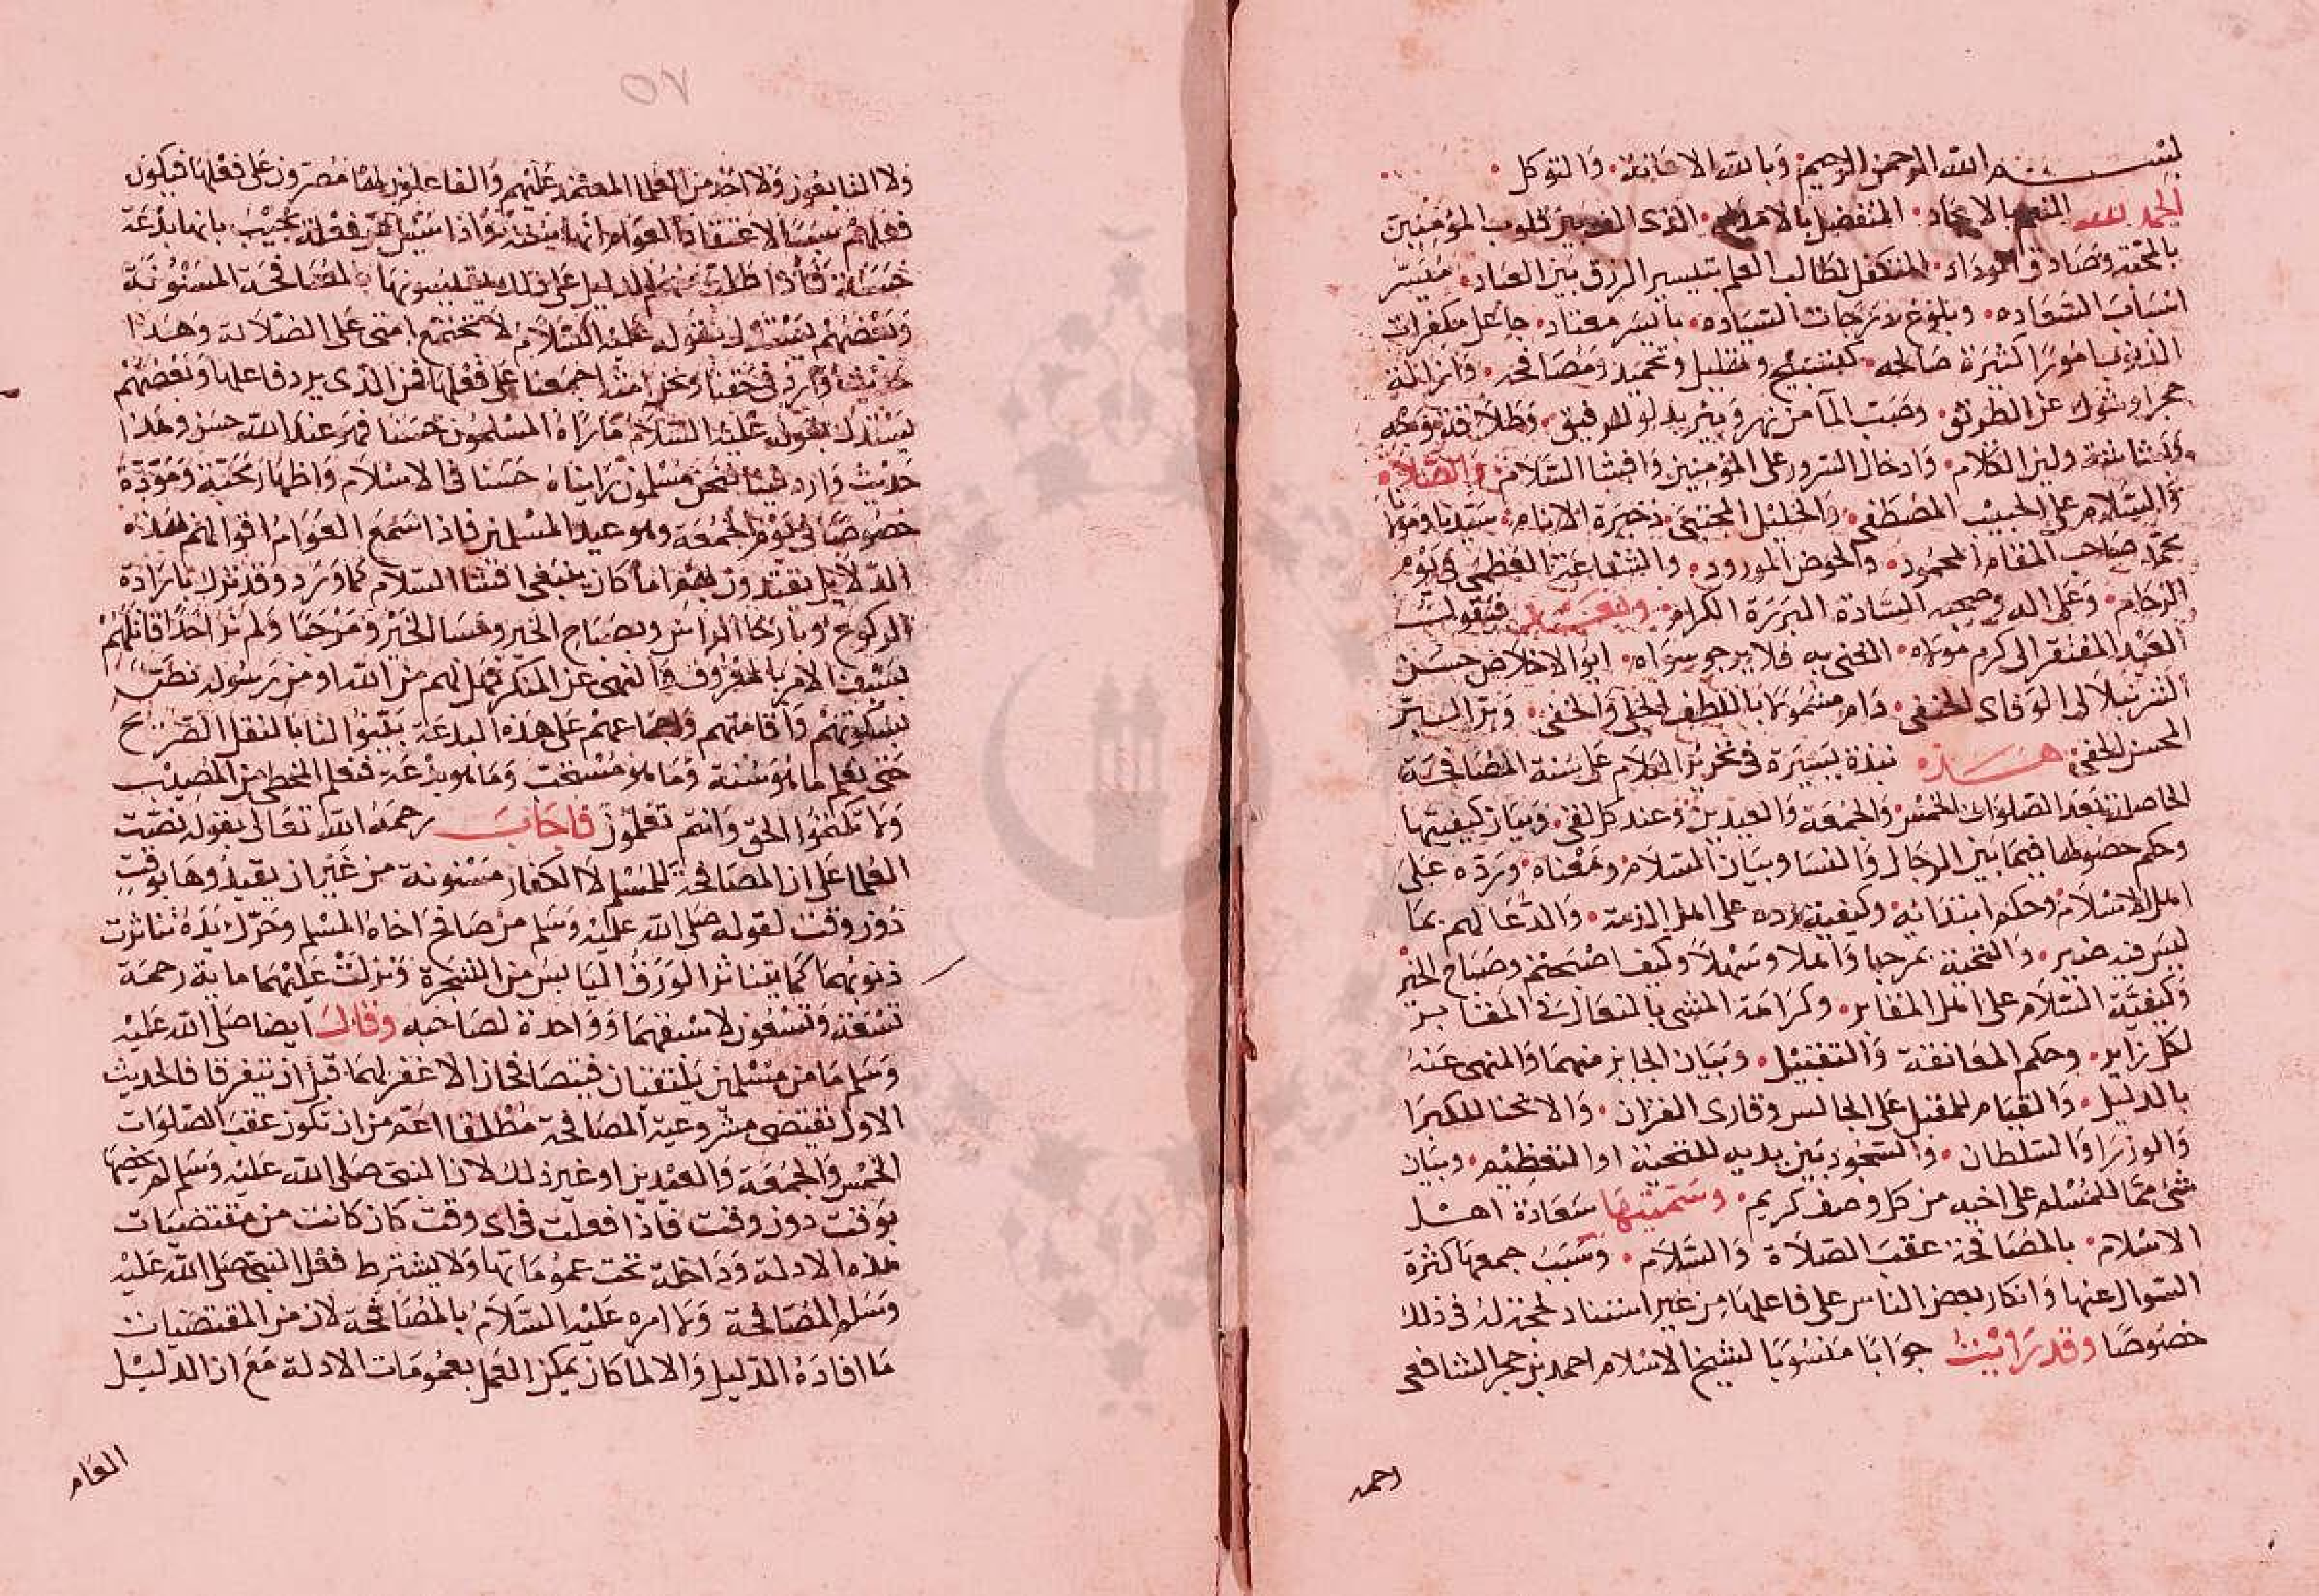 بسم الله الرحمن الرحيم وبالله الاعانة والتوكل
الحمد لله المنعم بالايجاد المتفضل بالامداد الذي الف بين قلوب المؤمنين
بالمحبة وصادق الوداد المتكفل لطالب العلم بتيسير الرزق بين العباد ميسر
اسباب السعاده وبلوغ درجات السياده بايسر معتاد جاعل مكفرات
الذنوب امورا كثيرة صالحه كتسبيح وتهليل وتحميد ومصافحه وازالة
حجر او شوك عن الطريق وصب الما من نهر وبئر يد لو للرفيق وطلاقة وجه
وبشاشة ولين الكلام وادخال السرور على المؤمنين وافشا السلام والصلاه
والسلام على الحبيب المصطفى والخليل المجتبى ذخيرة الانام سيدنا ومولانا
محمد صاحب المقام المحمود والحوض المورود والشفاعة العظمى في يوم
الزحام وعلى اله وصحبه السادة البررة الكرام وبعد فيقول
العبد المفتقر الى كرم مولاه الغني به فلا يرجو سواه ابو الاخلاص حسن
الشرنبلالي الوفاى الحنفي دام مشمولا باللطف الجلي والخفي وبر البر
المحسن الحفي هذه نبذة يسيرة في تحرير الكلام على سنة المصافحة
الحاصلة بعد الصلوات الخمس والجمعة والعيدين وعند كل لقى وبيان كيفيتها
وحكم حصولها فيما بين الرجال والنسا وبيان السلام ومعناه ورده على
اهل الاسلام وحكم ابتدائه وكيفية رده على اهل الذمة والدعا لهم بما
ليس فيه ضير والتحية بمرحبا واهلا وسهلا وكيف اصبحتم وصباح الخير
وكيفية السلام على اهل المقابر وكراهة المشي بالنعال في المقابر
لكل زاير وحكم المعانقة والتقبيل وبيان الجايز منهما والمنهى عنه
بالدليل والقيام للمقبل على الجالس وقارى القران والانحنا للكبرا
والوزرا والسلطان والسجود بين يديه للتحية او التعظيم وبيان
شئ مما للمسلم على اخيه من كل وصف كريم وسميتها سعادة اهل
الاسلام بالمصافحة عقب الصلاة والسلام وسبب جمعها كثرة
السوال عنها وانكار بعض الناس على فاعلها من غير استناد لحجة له في ذلك
خصوصا وقد رايت جوابا منسوبا لشيخ الاسلام احمد بن حجر الشافعى
احمد
٥٧
ولا التابعون ولا احد من العلما المعتمد عليهم والفاعلون لها مصرون على فعلها فيكون
فعلهم سببا لاعتقاد العوام انها سنة واذا سئل عن فعله يجيب بانها بدعة
حسنة فاذا طلب منهم الدليل على ذلك بالمصافحة المسنونة
وبعضهم يتمسك بقوله عليه السلام لا تجتمع امتى على الضلالة وهذا
حديث وارد في حقنا ونحن امته اجمعنا على فعلها فمن الذى يرد فاعلها وبعضهم
يستدل بقوله عليه السلام ما راه المسلمون حسنا فهو عند الله حسن وهذا
حديث وارد فينا فنحن مسلمون رايناه حسنا في الاسلام واظهار محبة ومودة
خصوصا في يوم الجمعة وهو عيد المسلمين فاذا سمع العوام اقوالهم هذه
الدلايل يقتدون بهم اما كان ينبغي افشا السلام كما ورد وقد ترك بارادة
الركوع وبارخا الراس وبصباح الخير ومسا الخير ومرحبا ولم نر احدا قاتلهم
بسيف الامر بالمعروف والنهى عن المنكر فهل لهم من الله او من رسوله نص
بسكوتهم واقامتهم واجماعهم على هذه البدعة بينوا لنا بالنقل الصريح
حتى نعلم ما هو سنة وما هو مستحب وما هو بدعة فنعلم المخطى من المصيب
ولا تكتموا الحق وانتم تعلمون فاجاب رحمه الله تعالى بقوله نصت
العلما على ان المصافحة للمسلم لا الكفار مسنونة من غير ان يقيدوها بوقت
دون وقت لقوله صلى الله عليه وسلم من صافح اخاه المسلم وحرك يده تناثرت
ذنوبهما كما يتناثر الورق اليابس من الشجرة ونزلت عليهما ماية رحمة
تسعة وتسعون لاسبقهما وواحدة لصاحبه وقال ايضا صلى الله عليه
وسلم ما من مسلمين يلتقيان فيتصافحان الا غفر لهما قبل ان يتفرقا فالحديث
الاول يقتضى مشروعية المصافحة مطلقا اعم من ان تكون عقب الصلوات
الخمس والجمعة والعيدين او غير ذلك لان النبي صلى الله عليه وسلم لم يخصها
بوقت دون وقت فاذا فعلت في اى وقت كان كانت من مقتضيات
هذه الادلة وداخلة تحت عموماتها ولا يشترط فعل النبي صلى الله عليه
وسلم المصافحة ولا امره عليه السلام بالمصافحة لان من المقتضيات
ما افاده الدليل والا لما كان يمكن العمل بعمومات الادلة مع ان الدليل
العام